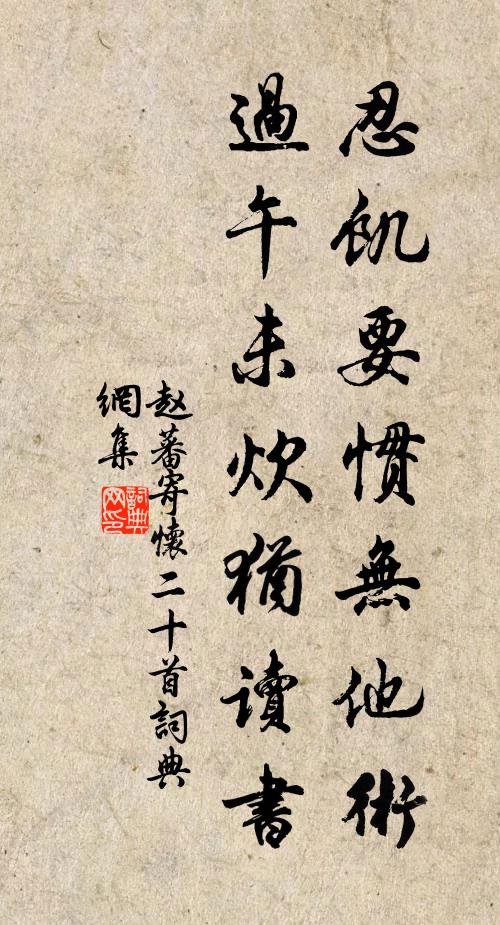 忍飢要慣無他術
過午未炊猶讀書
赵蕃寄懷二十首詞典
網集
詞典
网印